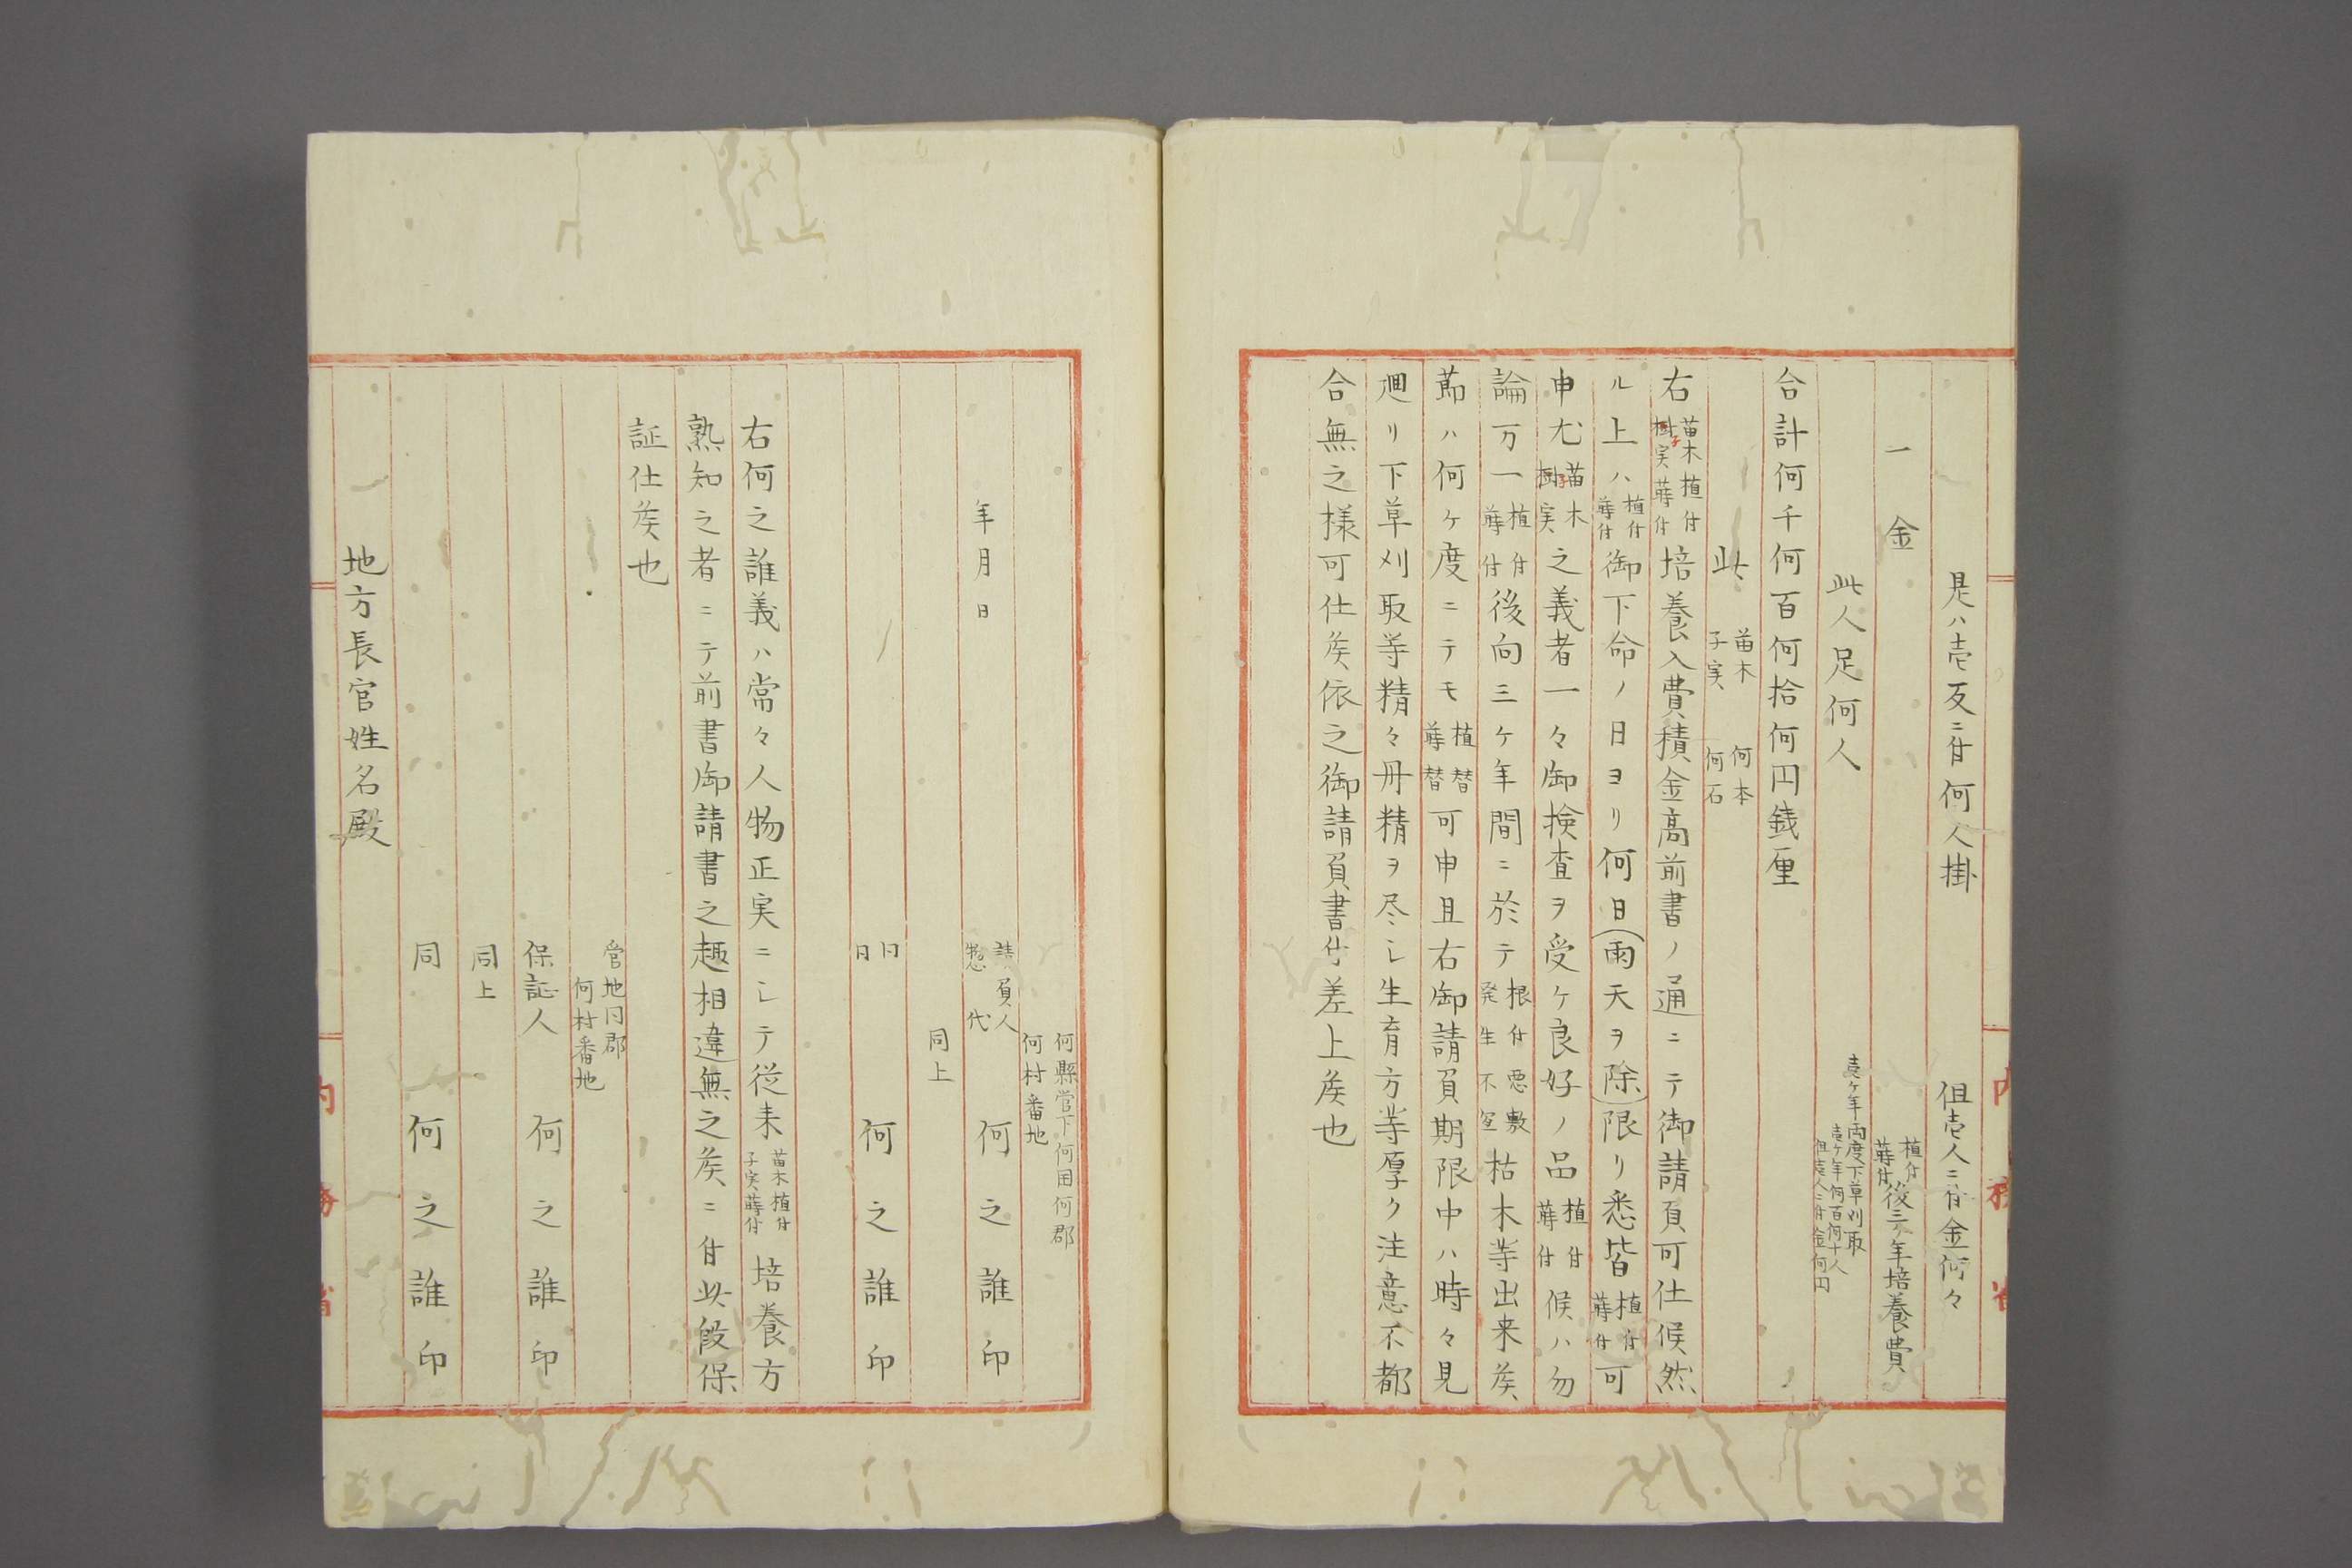 是ハ壱反ニ付何人掛　但壱人ニ付金何々
一金　植付蒔付後三ケ年培養費
壱ケ年両度下草刈取
壱ケ年何百何十人
但壱人ニ付金何円
此人足何人
合計何千何百何拾何円銭厘
此　苗木　何本
子実　何石
右苗木植付樹子実蒔付培養入費積金高前書ノ通ニテ御請負可仕候然
ル上ハ植付蒔付御下命ノ日ヨリ何日(雨天ヲ除)限リ悉皆植付蒔付可
申尤苗木樹子実之義者一々御検査ヲ受ケ良好ノ品植付蒔付候ハ勿
論万一植付蒔付後向三ケ年間ニ於テ根付悪敷発生不宜枯木等出来矦、
節ハ何ケ度ニテモ植替蒔替可申且右御請負期限中ハ時々見
廻リ下草刈取等精々丹精ヲ尽シ生育方等厚ク注意不都
合無之様可仕矦依之御請負書付差上矦也
何縣管下何国何郡
何村番地
年月日　請負人惣代　何之誰印
同上
同日　何之誰印
右何之誰義ハ常々人物正実ニシテ従来苗木植付子実蒔付培養方
熟知之者ニテ前書御請書之趣相違無之矦ニ付此段保
証仕矦也
管地同郡
何村番地
保証人　何之誰印
同上
同　何之誰印
地方長官姓名殿
内務省